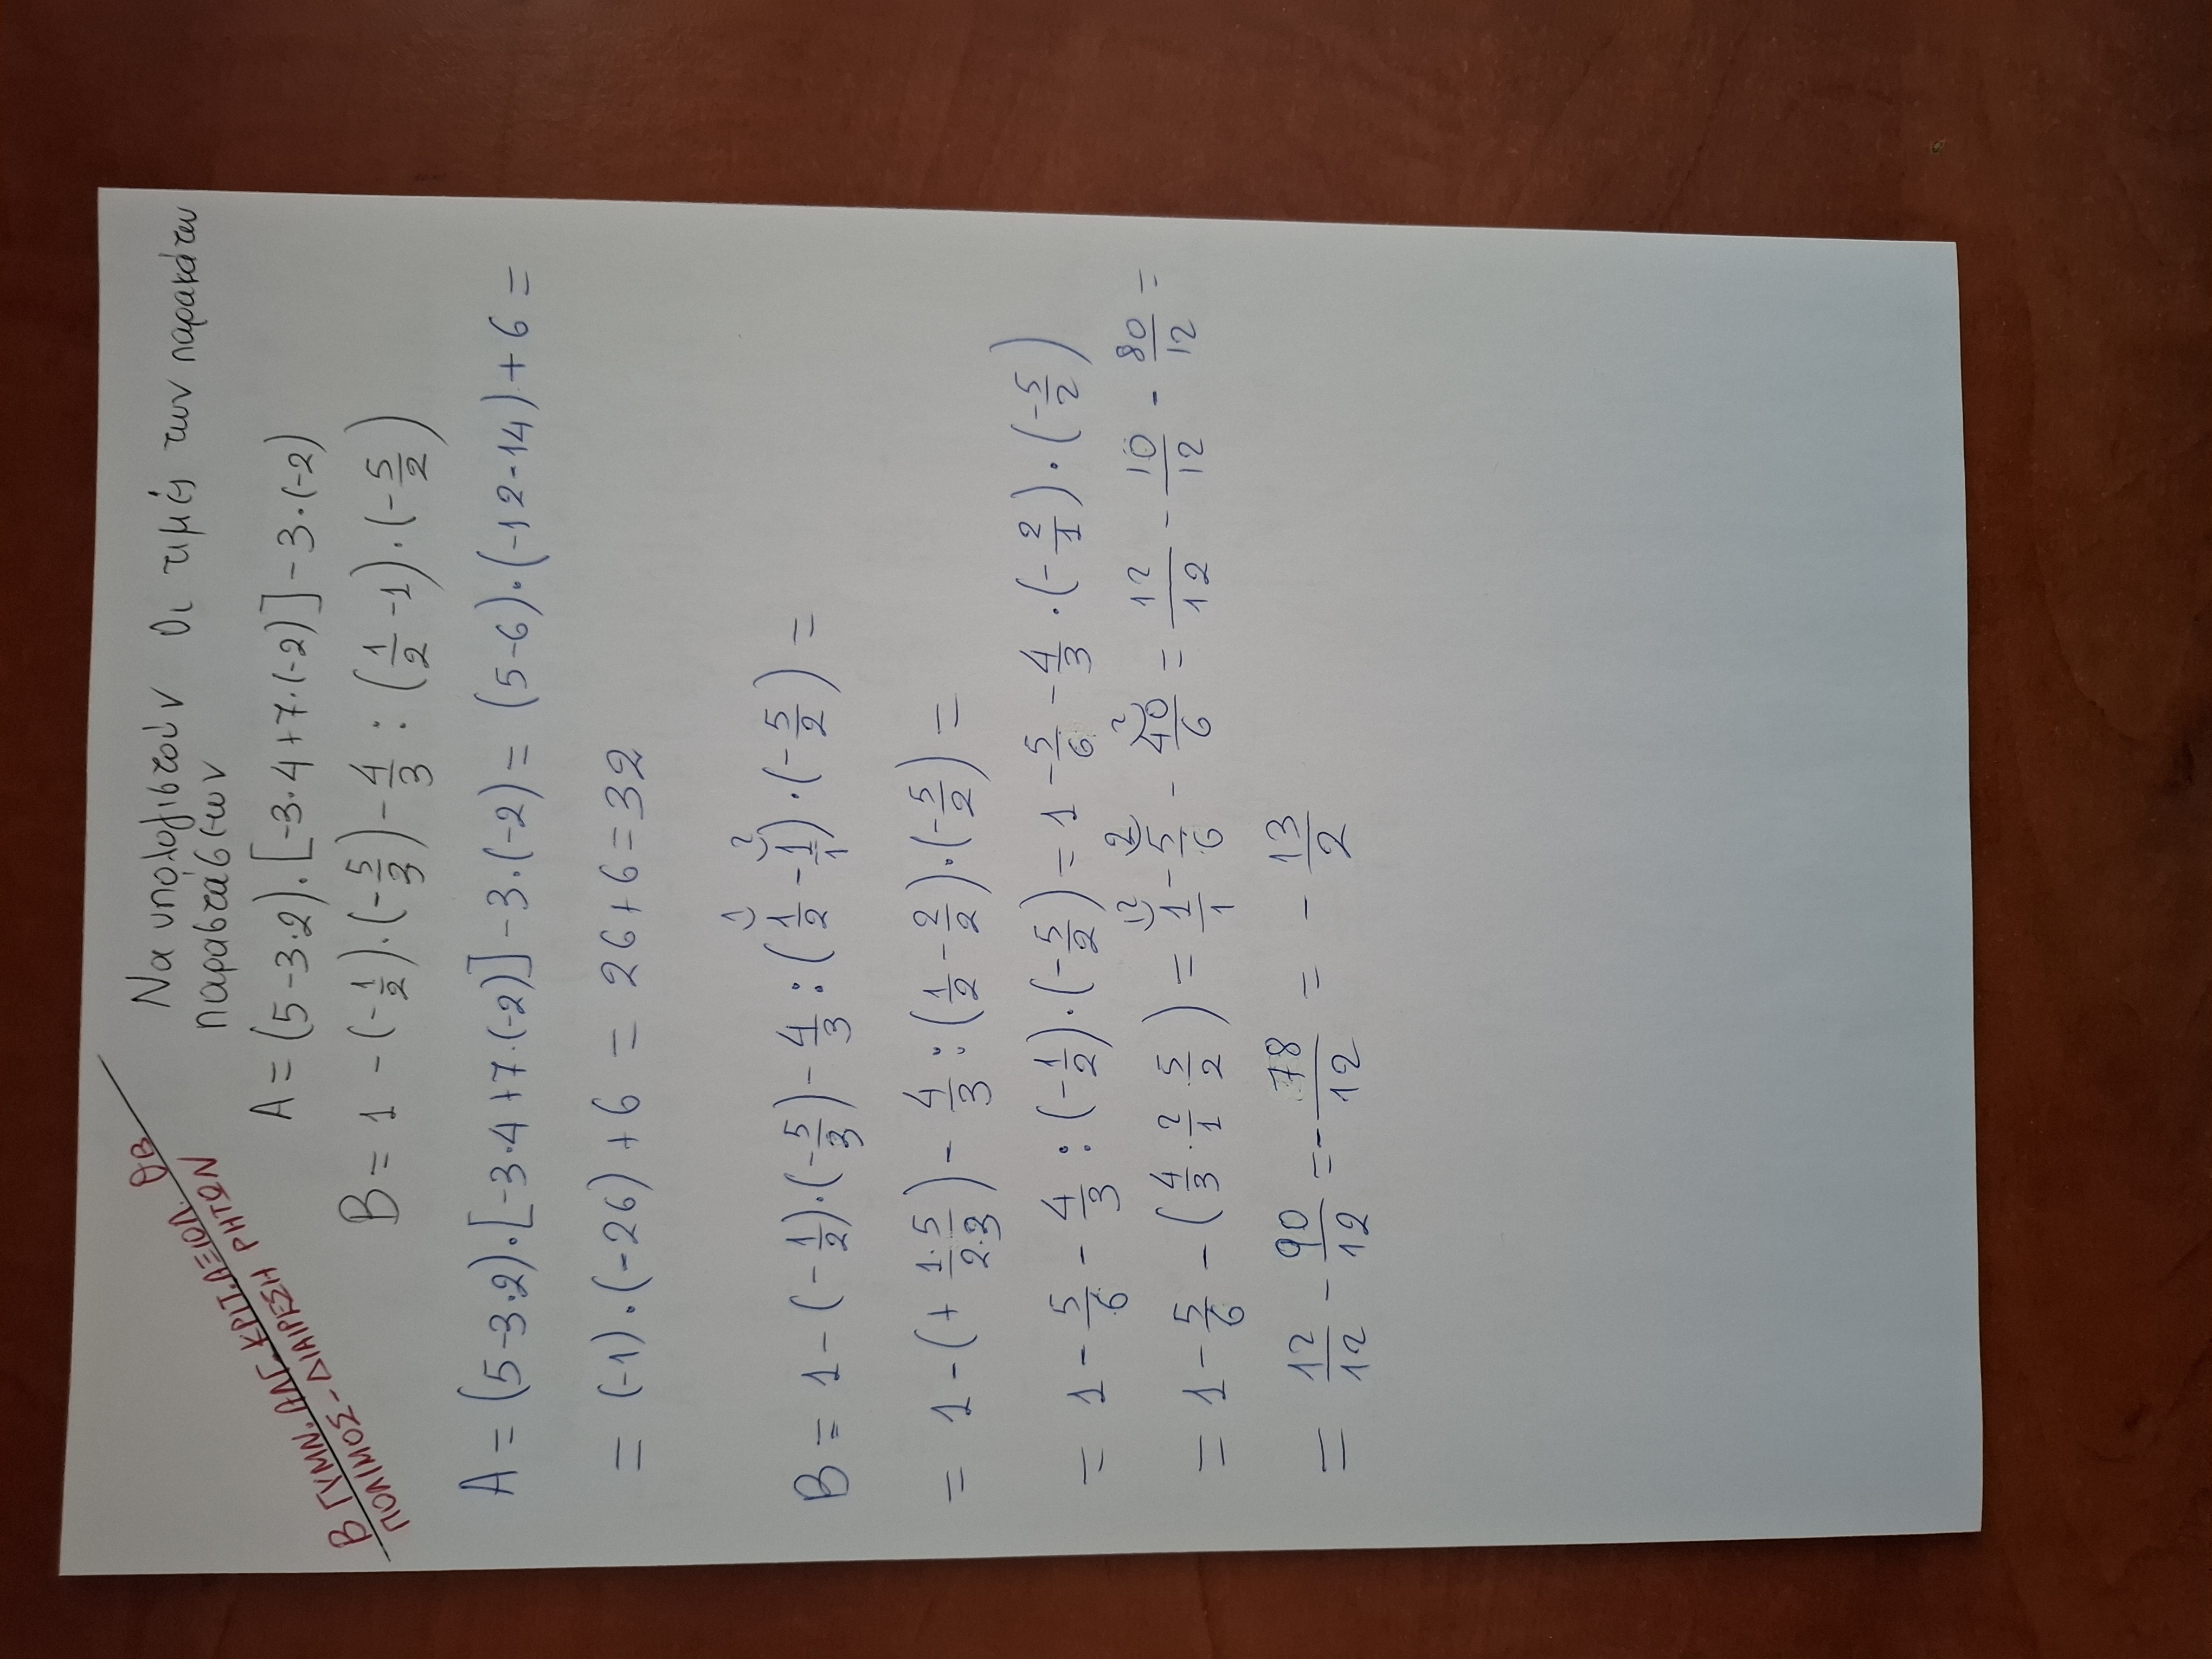 Β ΓΥΜΝ. ΑΛΓ. ΚΡΙΤ. ΑΞΙΟΛ. θΒ
ΠΟΛΙΜΟΣ - ΔΙΑΙΡΕΣΗ ΡΗΤΩΝ
Να υπολογιστούν οι τιμές των παρακάτω
παραστάσεων
A = (5 - 3·2)·[-3·4 + 7·(-2)] - 3·(-2)
B = 1 - (-1/2)·(-5/3) - 4/3 : (1/2 - 1)·(-5/2)
A = (5 - 3·2)·[-3·4 + 7·(-2)] - 3·(-2) = (5 - 6)·(-12 - 14) + 6 =
= (-1)·(-26) + 6 = 26 + 6 = 32
B = 1 - (-1/2)·(-5/3) - 4/3 : (1/2 - 1/1)·(-5/2) =
= 1 - (+ 1·5/2·3) - 4/3 : (1/2 - 2/2)·(-5/2) =
= 1 - 5/6 - 4/3 : (-1/2)·(-5/2) = 1 - 5/6 - 4/3·(-2/1)·(-5/2)
= 1 - 5/6 - (4/3·2/1·5/2) = 1/1 - 5/6 - 40/6 = 12/12 - 10/12 - 80/12 =
= 12/12 - 90/12 = - 78/12 = - 13/2